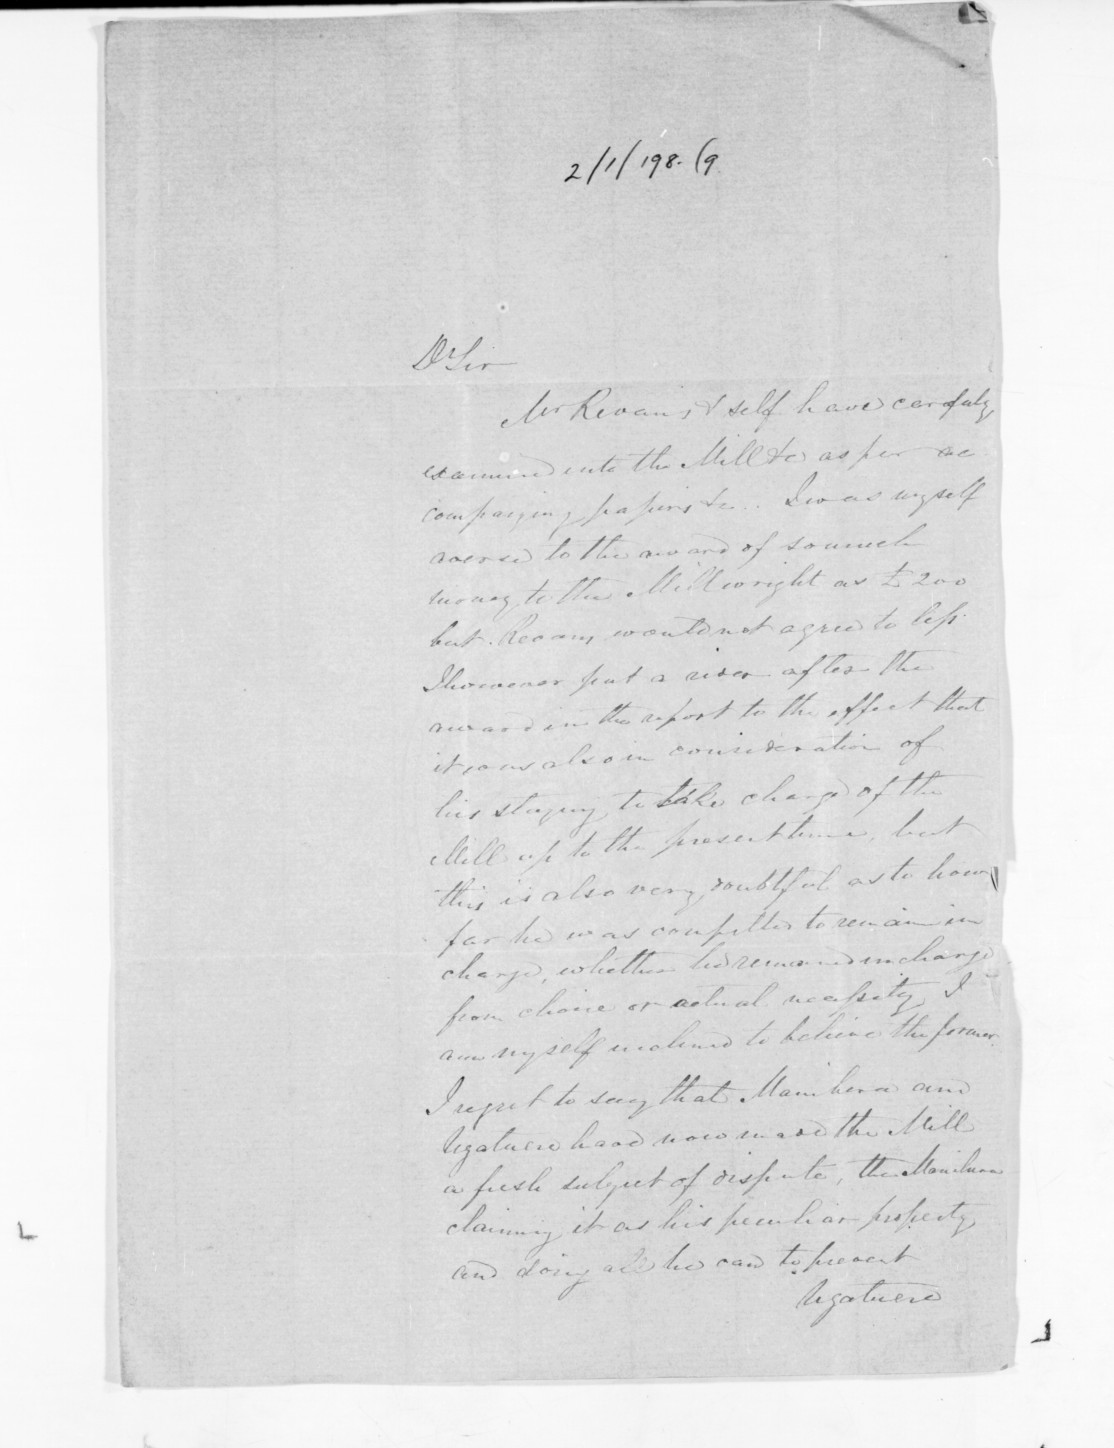 2/1/198. (9
Dr Sir
Mr Revans & self have carefuly
examined into the Mill &c as per ac
companying papers &c.. I was myself
averse to the award of so much
money to the Millwright as £200
but Revans would not agree to less.
I however put a rider after the
award in the report to the effect that
it was also in consideration of
his staying to take charge of the
Mill up to the present time, but
this is also very doubtful as to how
far he was compelled to remain in
charge, whether he remained in charge
from choice or actual necessity, I
am myself inclined to believe the former.
I regret to say that Manihera and
Ngatuere have now made the Mill
a fresh subject of dispute, the Manihera
claiming it as his peculiar property
and doing all he can to prevent
Ngatuere